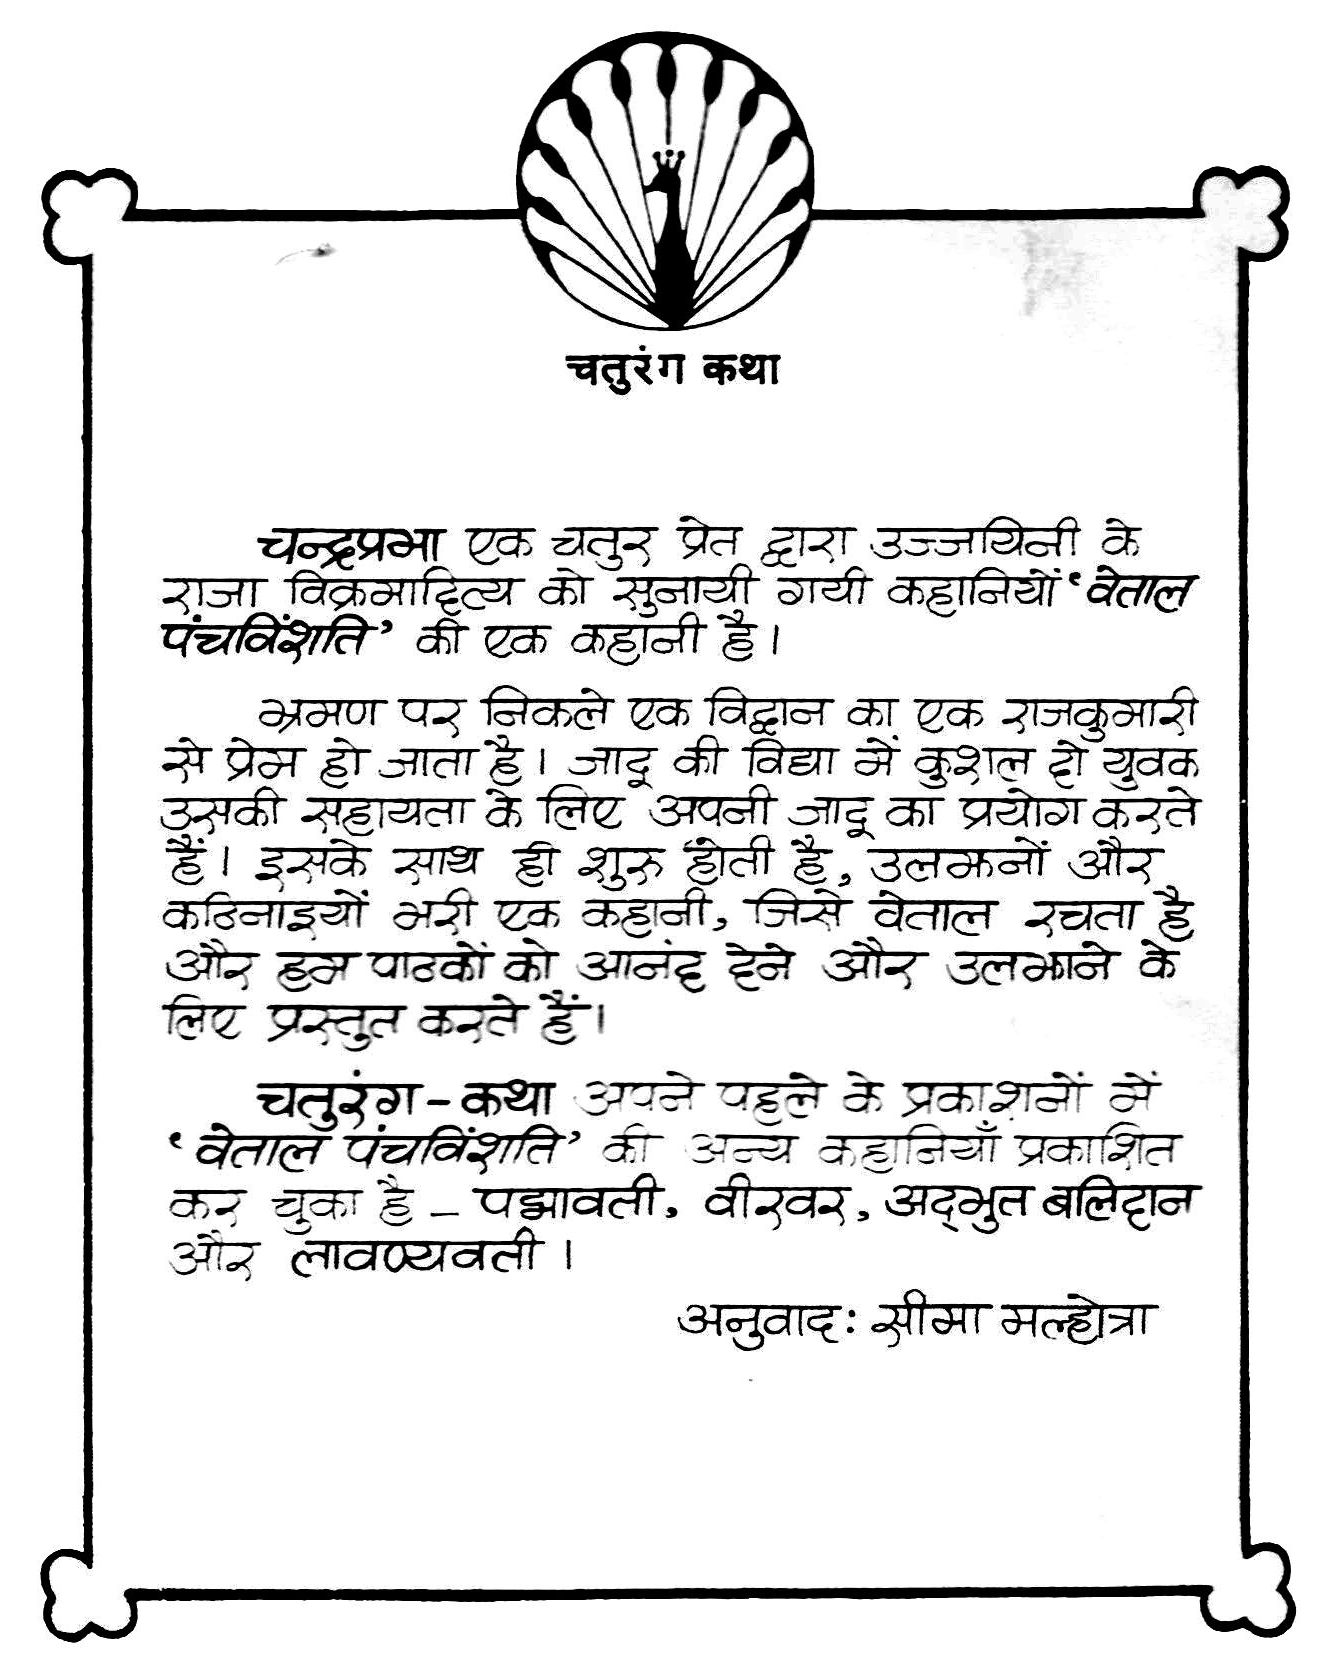 चतुरंग कथा
चन्द्रप्रभा एक चतुर प्रेत द्वारा उज्जयिनी के
राजा विक्रमादित्य को सुनायी गयी कहानियों ‘वेताल
पंचविंशति’ की एक कहानी है।
भ्रमण पर निकले एक विद्वान का एक राजकुमारी
से प्रेम हो जाता है। जादू की विद्या में कुशल दो युवक
उसकी सहायता के लिए अपनी जादू का प्रयोग करते
हैं। इसके साथ ही शुरु होती है, उलझनों और
कठिनाइयों भरी एक कहानी, जिसे वेताल रचता है
और हम पाठकों को आनंद देने और उलझाने के
लिए प्रस्तुत करते हैं।
चतुरंग-कथा अपने पहले के प्रकाशनों में
‘वेताल पंचविंशति’ की अन्य कहानियाँ प्रकाशित
कर चुका है – पद्मावती, वीरवर, अद्‌भुत बलिदान
और लावण्यवती।
अनुवाद: सीमा मल्होत्रा